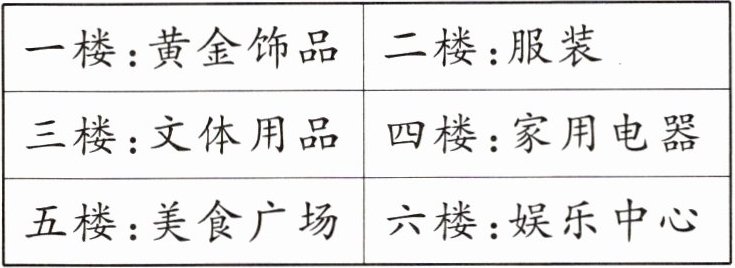 一楼:黄金饰品 二楼:服装
三楼:文体用品 四楼:家用电器
五楼:美食广场 六楼:娱乐中心